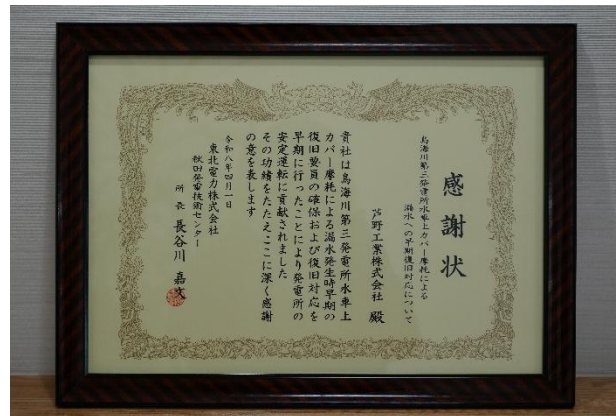 感謝状
鳥海川第三発電所水車上カバー摩耗による
漏水への早期復旧対応について
芦野工業株式会社 殿
貴社は鳥海川第三発電所水車上
カバー摩耗による漏水発生時早期の
復旧要員の確保および復旧対応を
早期に行ったことにより発電所の
安定運転に貢献されました
その功績をたたえここに深く感謝
の意を表します
令和八年四月一日
東北電力株式会社
秋田発電技術センター
所長 長谷川 嘉文